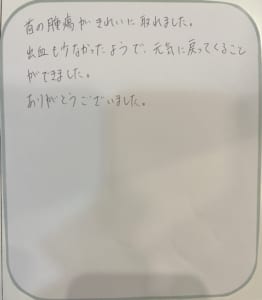 首の腫瘍がきれいに取れました。
出血も少なかったようで、元気に戻ってくること
ができました。
ありがとうございました。